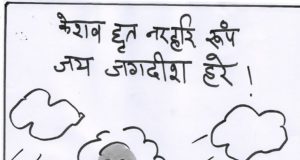 केशव धृत नरहरि रूप
जय जगदीश हरे !